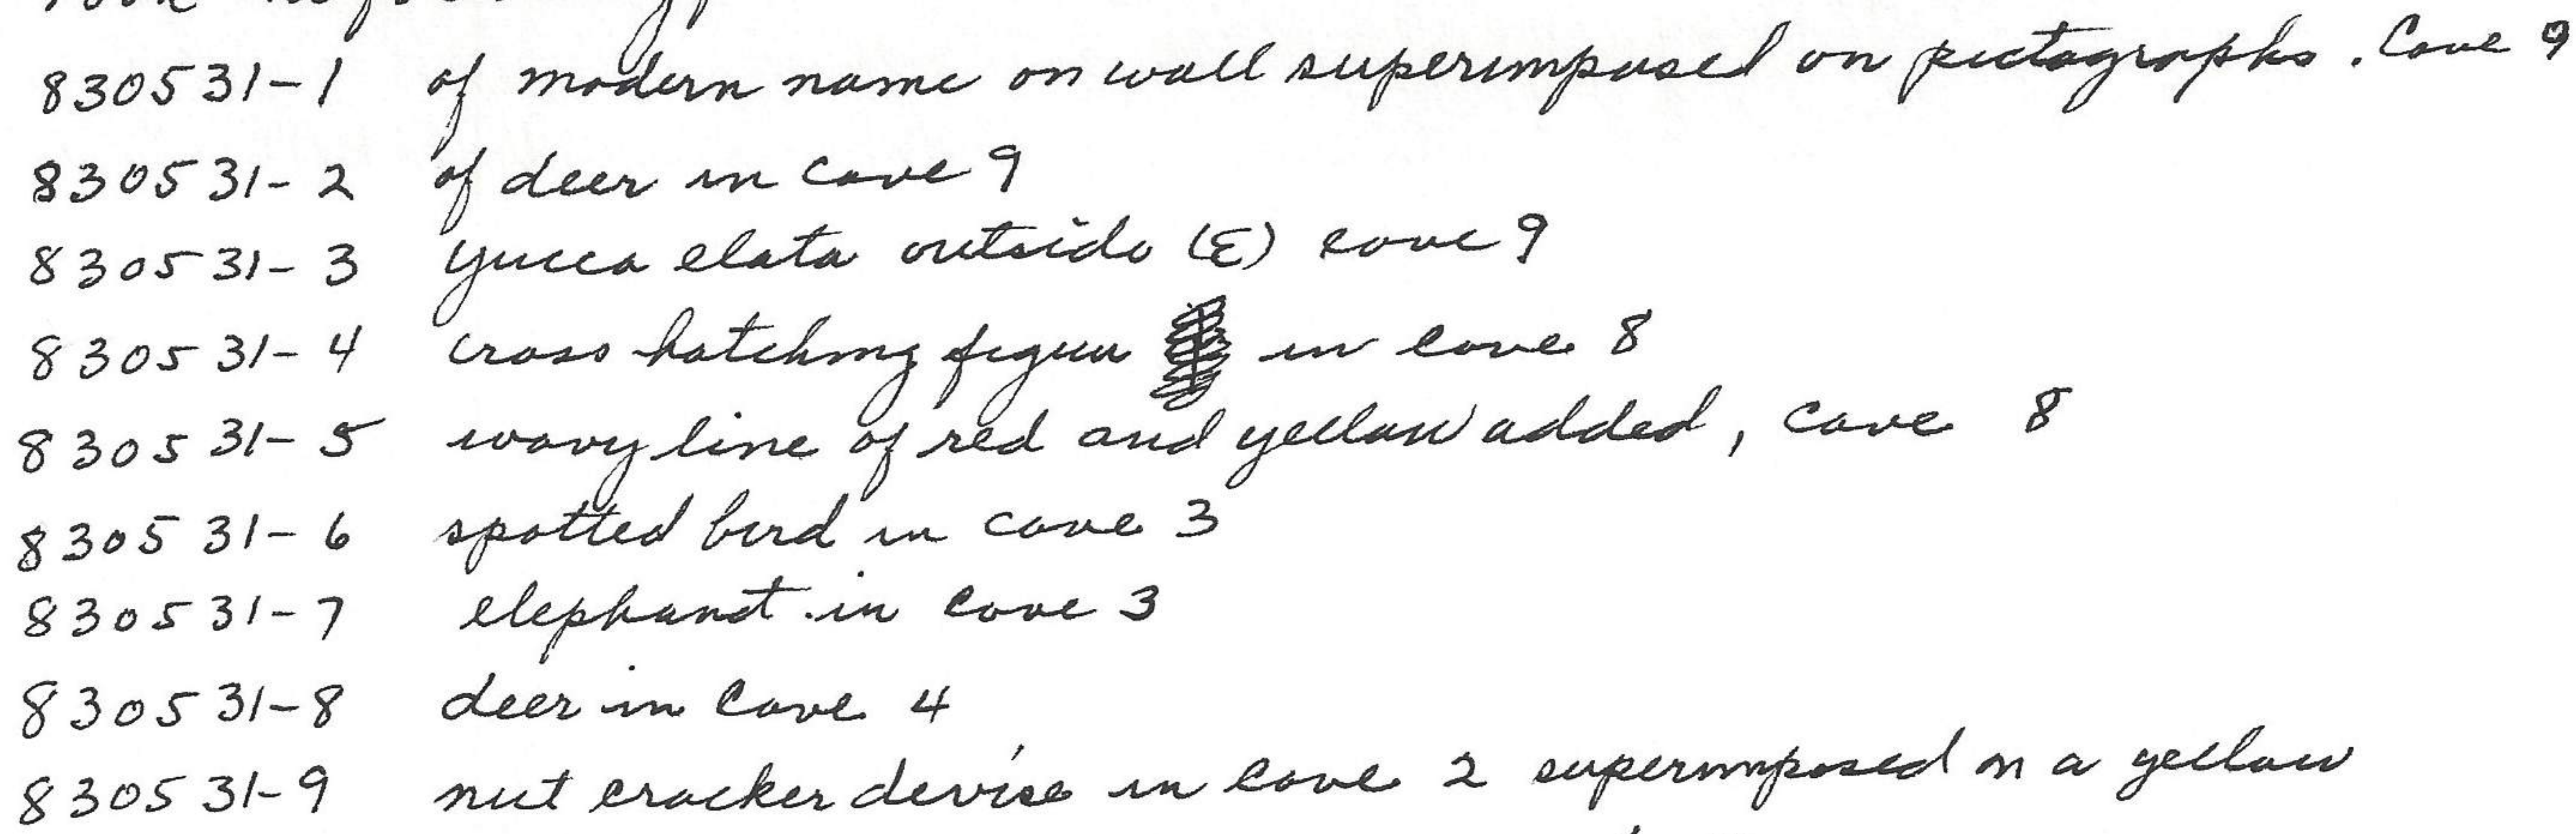 830531-1 of modern name on wall superimposed on pictographs. Cave 9
830531-2 of deer in cave 9
830531-3 yucca elata outside (E) cave 9
830531-4 cross hatching figure in cave 8
830531-5 wavy line of red and yellow added, cave 8
830531-6 spotted bird in cave 3
830531-7 elephant in cave 3
830531-8 deer in Cave 4
830531-9 nut cracker devise in cave 2 superimposed on a yellow